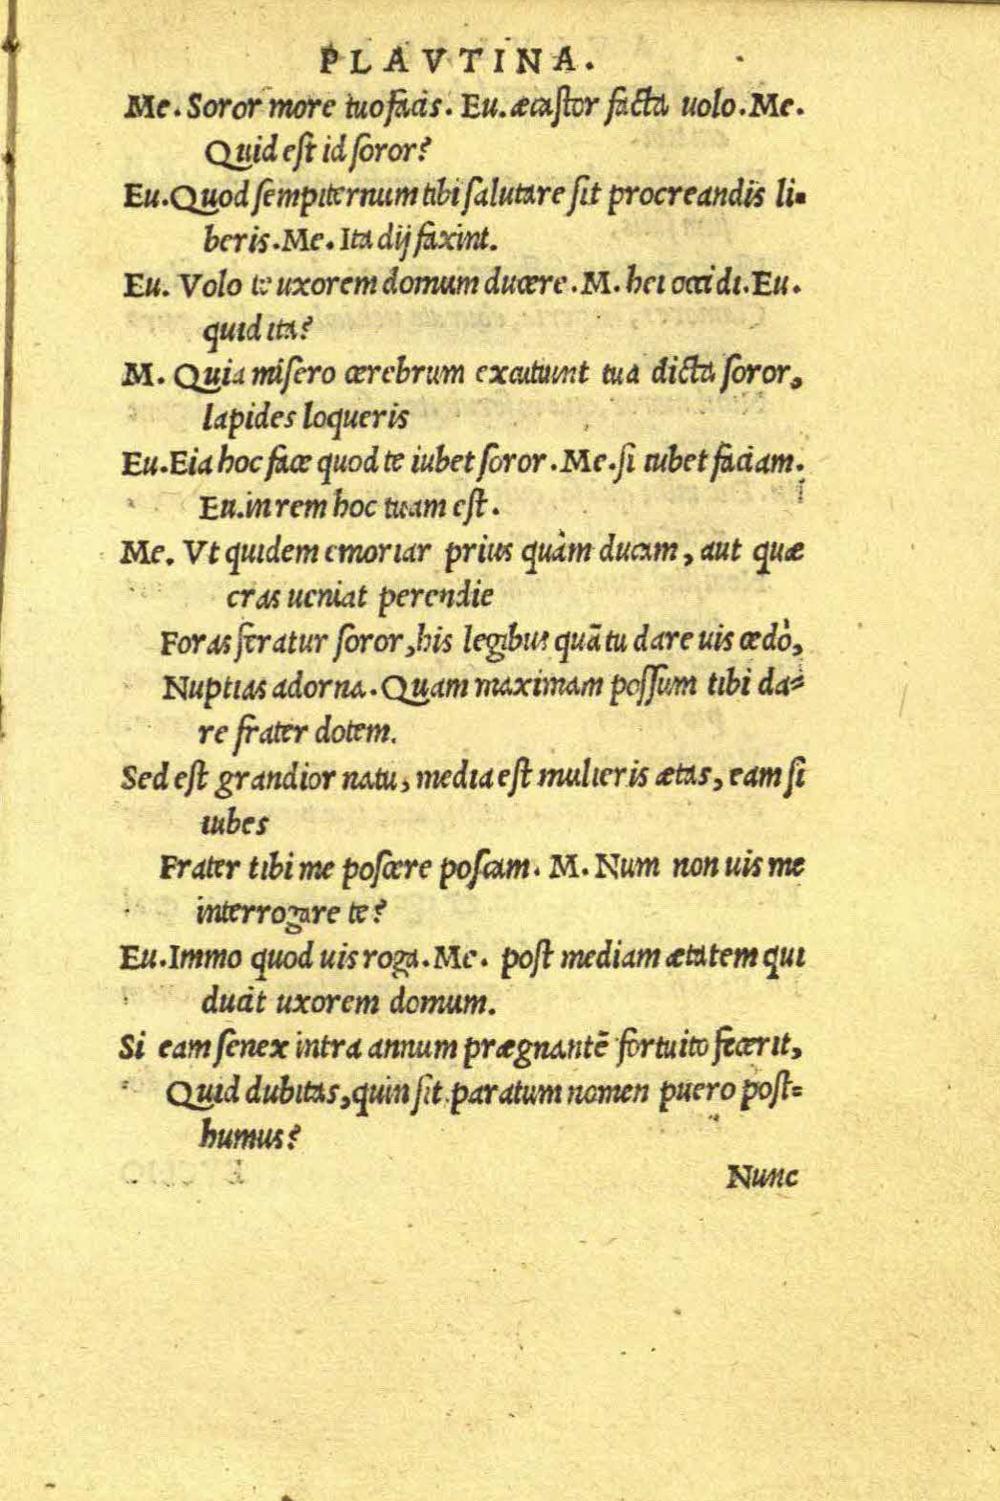 PLAVTINA.
Me. Soror more tuo facis. Eu. æcastor facta uolo. Me.
Quid est id soror?
Eu. Quod sempiternum tibi salutare sit procreandis li-
beris. Me. Ita dij faxint.
Eu. Volo te uxorem domum ducere. M. hei occidi. Eu.
quid ita?
M. Quia misero cerebrum excutiunt tua dicta soror,
lapides loqueris
Eu. Eia hoc face quod te iubet soror. Me. si iubet faciam.
Eu. in rem hoc tuam est.
Me. Vt quidem emoriar prius quàm ducam, aut quæ
cras ueniat perendie
Foras feratur soror, his legibus quã tu dare uis cedò,
Nuptias adorna. Quam maximam possum tibi da=
re frater dotem.
Sed est grandior natu, media est mulieris ætas, eam si
iubes
Frater tibi me poscere poscam. M. Num non uis me
interrogare te?
Eu. Immo quod uis roga. Me. post mediam ætatem qui
ducit uxorem domum.
Si eam senex intra annum prægnantẽ fortuito fecerit,
Quid dubitas, quin sit paratum nomen puero post=
humus?
Nunc